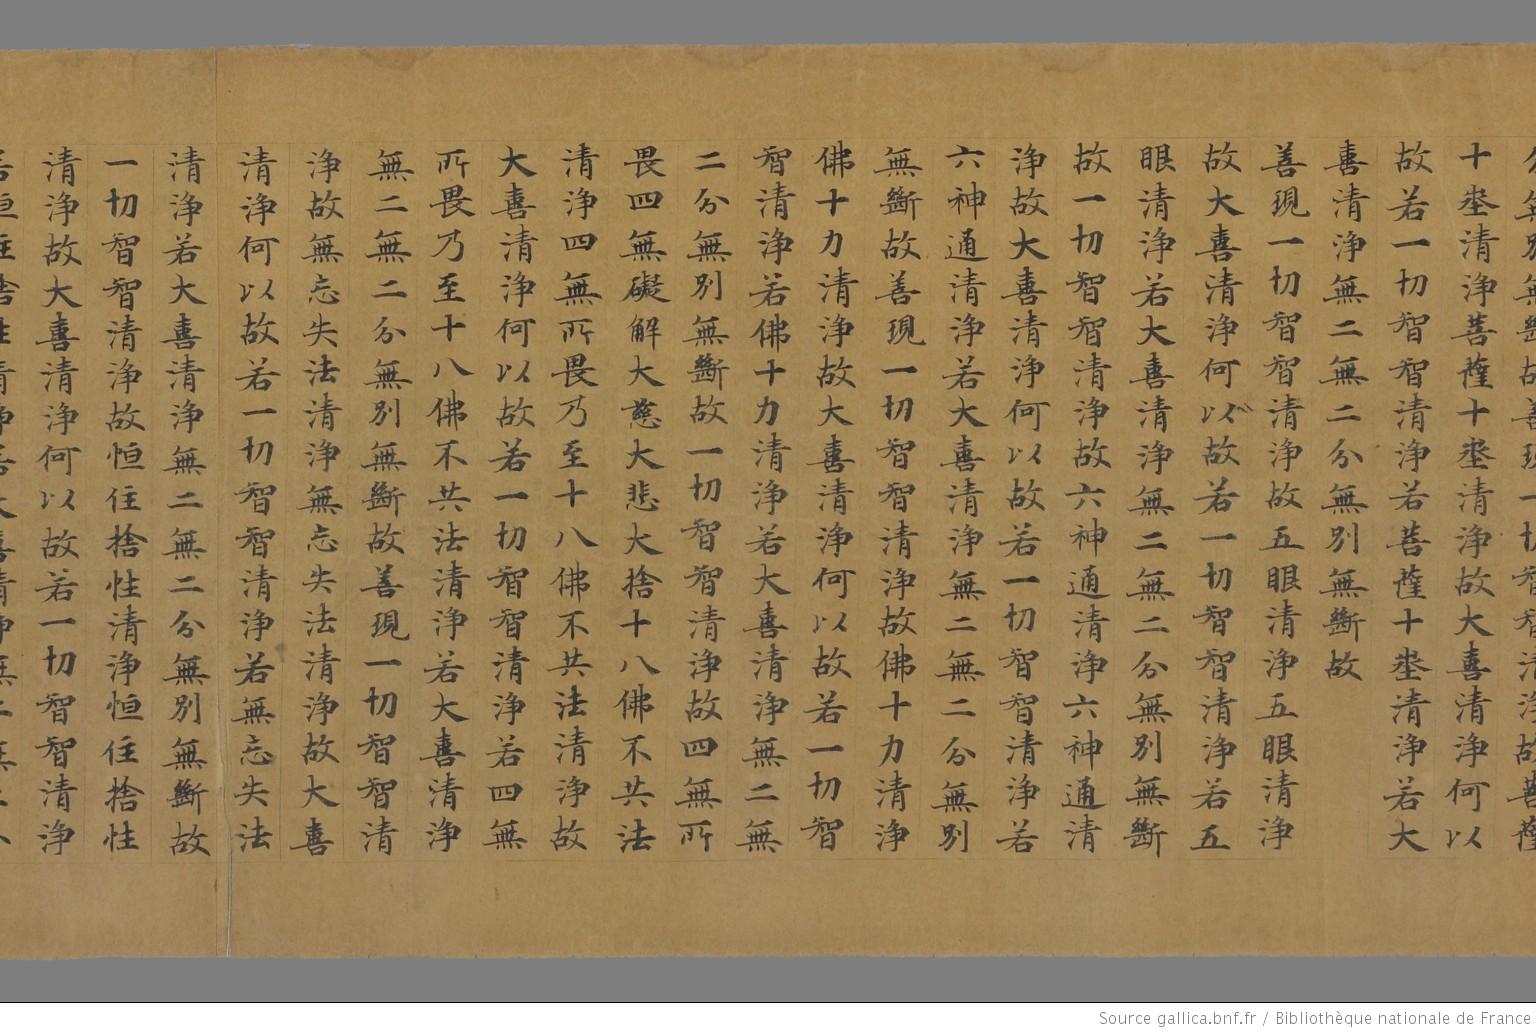 分無別無斷故善現一切智智清淨故菩薩
十埊清淨菩薩十埊清淨故大喜清淨何以
故若一切智智清淨若菩薩十埊清淨若大
喜清淨無二無二分無別無斷故
善現一切智智清淨故五眼清淨五眼清淨
故大喜清淨何以故若一切智智清淨若五
眼清淨若大喜清淨無二無二分無別無斷
故一切智智清淨故六神通清淨六神通清
淨故大喜清淨何以故若一切智智清淨若
六神通清淨若大喜清淨無二無二分無別
無斷故善現一切智智清淨故佛十力清淨
佛十力清淨故大喜清淨何以故若一切智
智清淨若佛十力清淨若大喜清淨無二無
二分無別無斷故一切智智清淨故四無所
畏四無礙解大慈大悲大捨十八佛不共法
清淨四無所畏乃至十八佛不共法清淨故
大喜清淨何以故若一切智智清淨若四無
所畏乃至十八佛不共法清淨若大喜清淨
無二無二分無別無斷故善現一切智智清
淨故無忘失法清淨無忘失法清淨故大喜
清淨何以故若一切智智清淨若無忘失法
清淨若大喜清淨無二無二分無別無斷故
一切智智清淨故恒住捨性清淨恒住捨性
清淨故大喜清淨何以故若一切智智清淨
若恒住捨性清淨若大喜清淨無二無二分
Source gallica.bnf.fr / Bibliothèque nationale de France